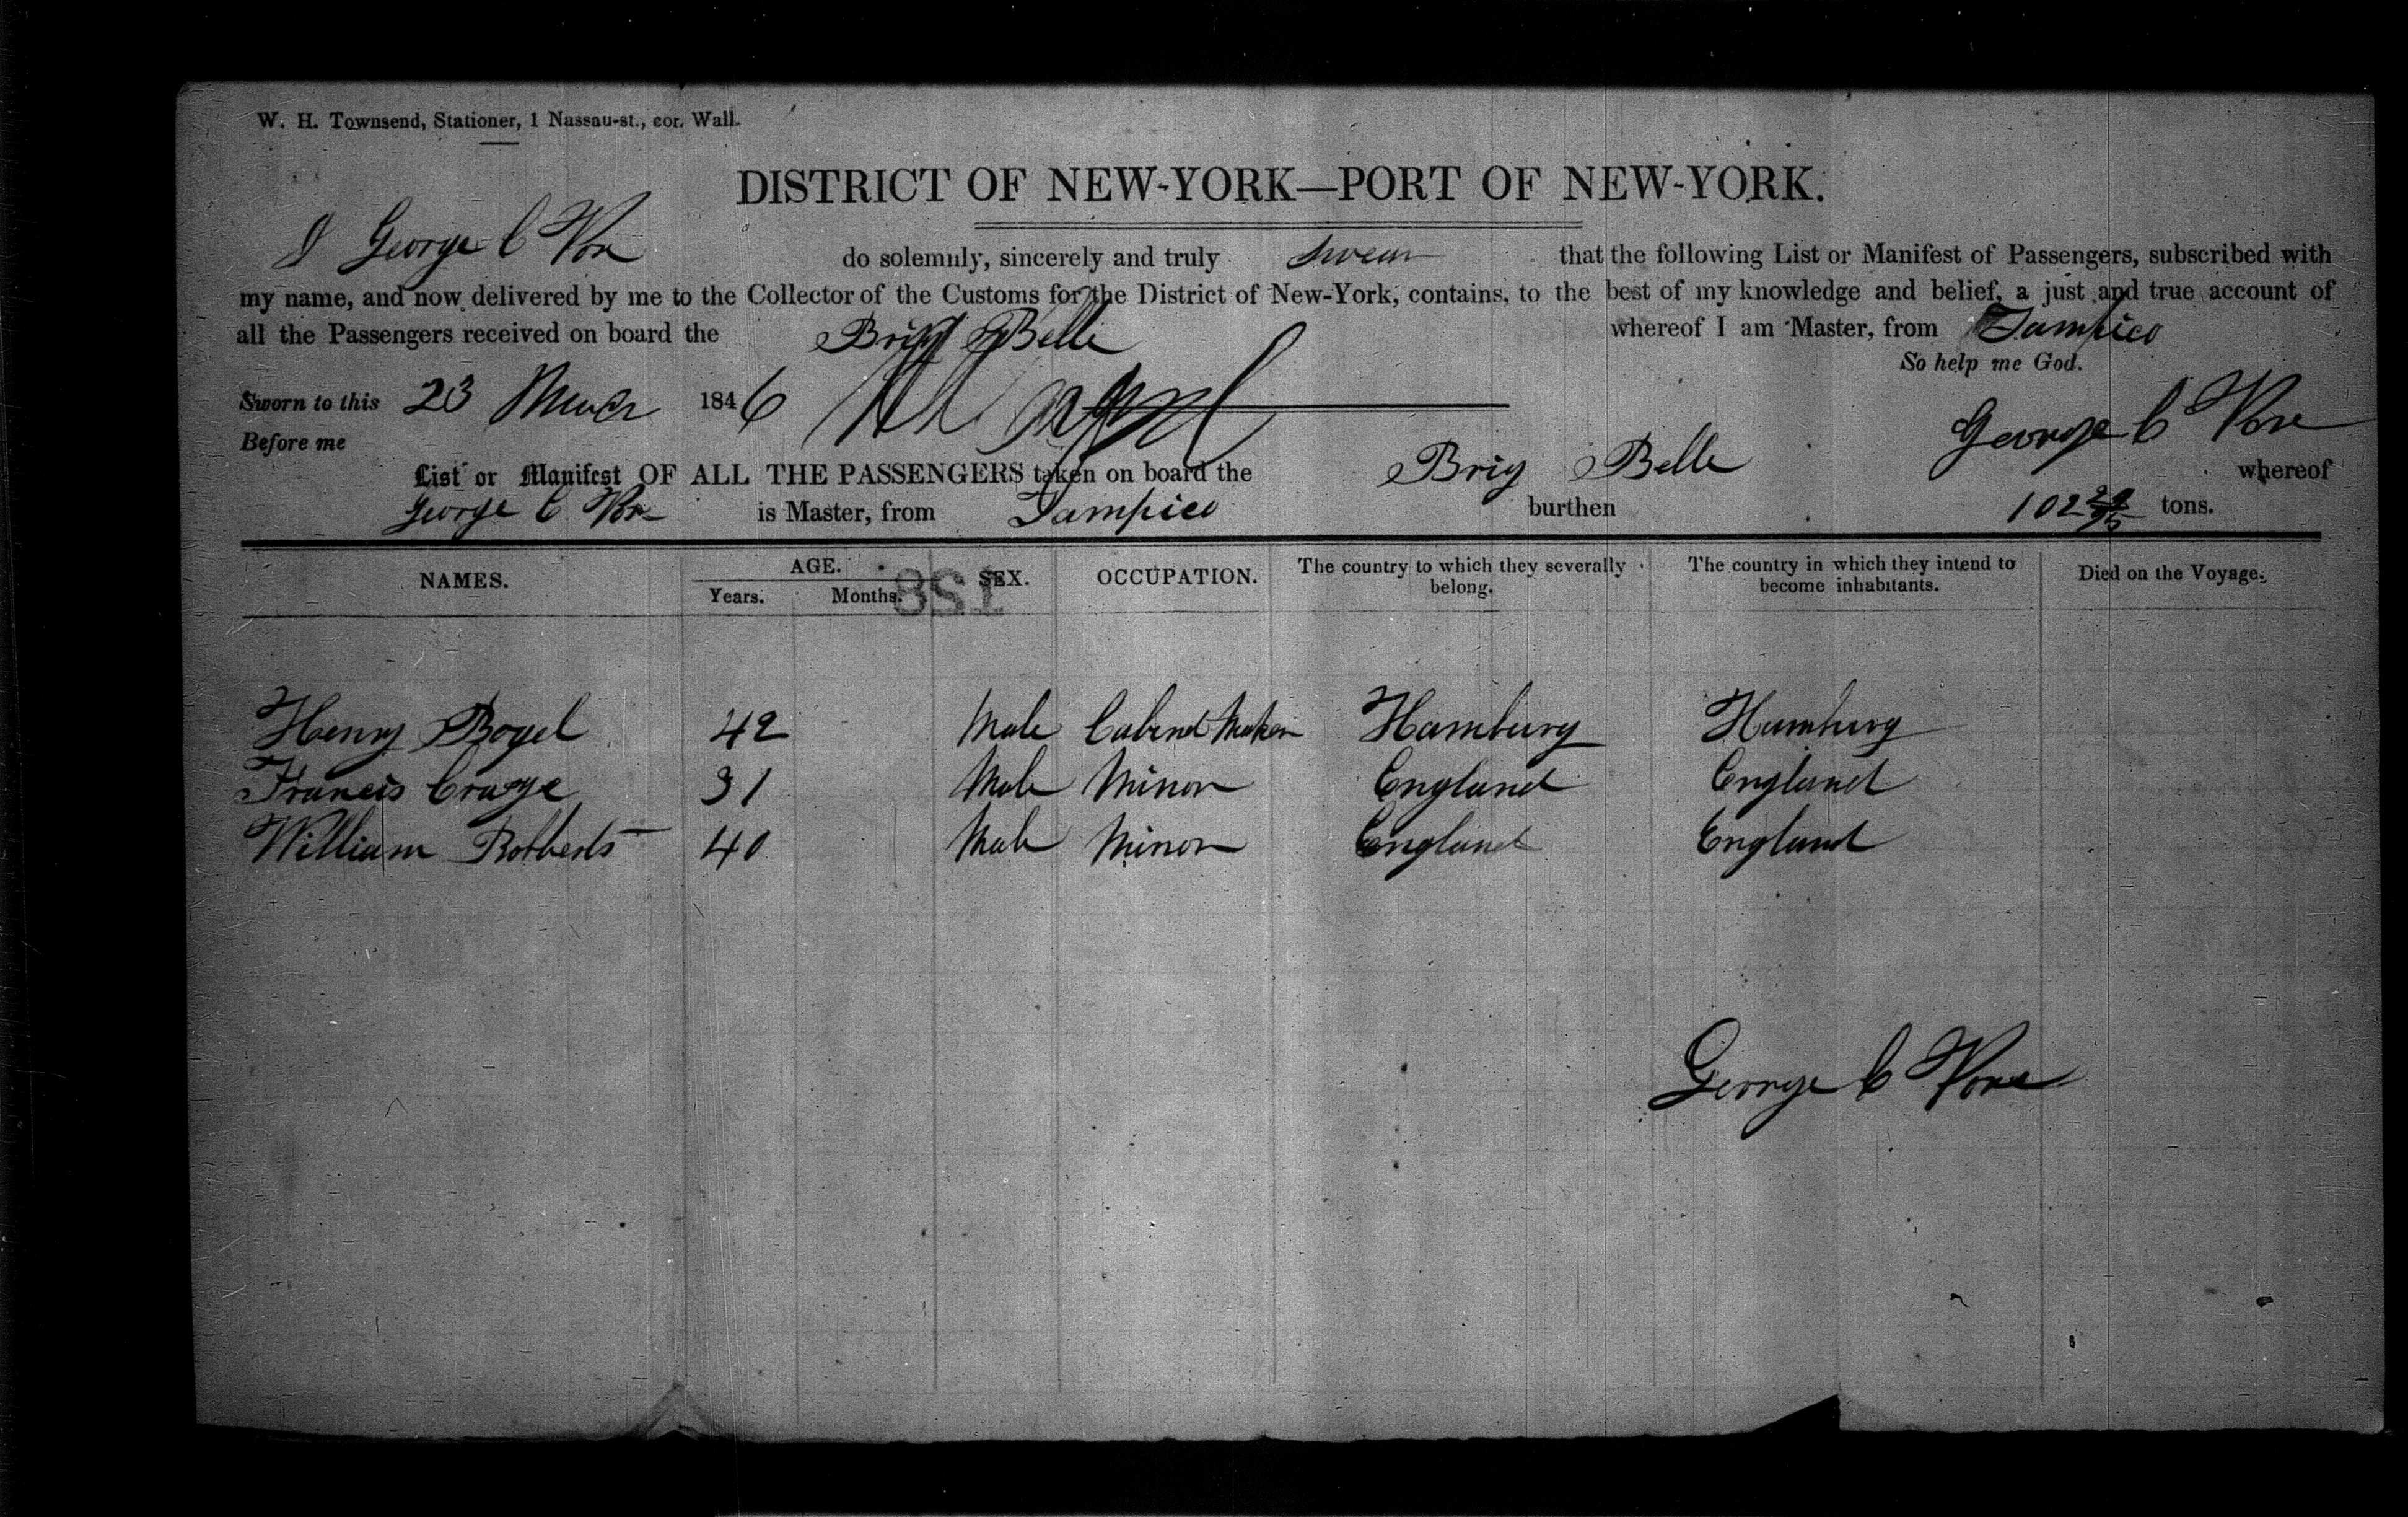 W. H. Townsend, Stationer, 1 Nassau-st., cor. Wall.
DISTRICT OF NEW-YORK—PORT OF NEW-YORK.
I George C Vose do solemnly, sincerely and truly swear that the following List or Manifest of Passengers, subscribed with
my name, and now delivered by me to the Collector of the Customs for the District of New-York, contains, to the best of my knowledge and belief, a just and true account of
all the Passengers received on board the Brig Belle whereof I am Master, from Tampico
So help me God.
Sworn to this 23 March 1846
Before me George C Vose
List or Manifest OF ALL THE PASSENGERS taken on board the Brig Belle whereof
George C Vose is Master, from Tampico burthen 102 tons.
NAMES. AGE. Years. Months. SEX. OCCUPATION. The country to which they severally belong. The country in which they intend to become inhabitants. Died on the Voyage.
158
Henry Bogel 42 Male Cabinet Maker Hamburg Hamburg
Francis 31 Male Minor England England
William Rotherts 40 Male Minor England England
George C Vose